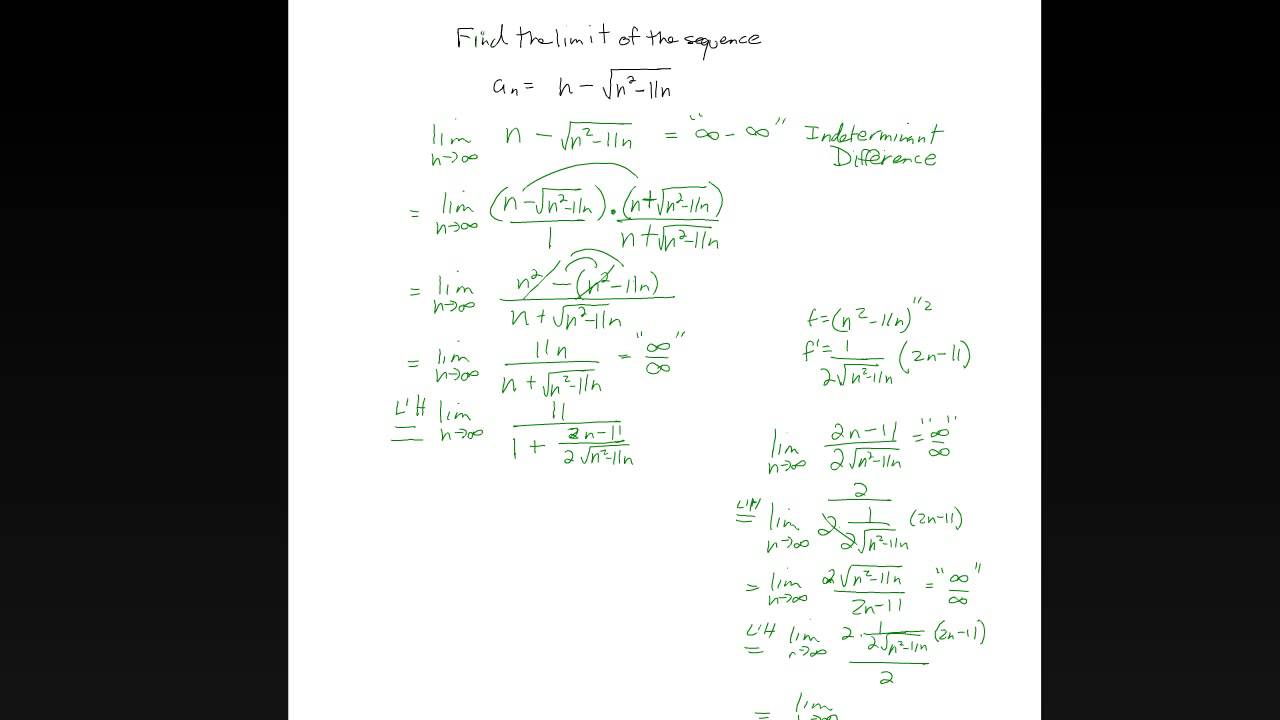 Find the limit of the sequence
aₙ = n − √(n²−11n)
lim n→∞ n − √(n²−11n) = "∞ − ∞" Indeterminant
Difference
= lim n→∞ (n − √(n²−11n))/1 · (n + √(n²−11n))/(n + √(n²−11n))
= lim n→∞ (n² − (n² − 11n))/(n + √(n²−11n))
= lim n→∞ 11n/(n + √(n²−11n)) = "∞/∞"
L'H = lim n→∞ 11/(1 + (2n−11)/(2√(n²−11n)))
f = (n² − 11n)^(1/2)
f' = 1/(2√(n²−11n)) (2n−11)
lim n→∞ (2n−11)/(2√(n²−11n)) = "∞/∞"
L'H = lim n→∞ 2/(2 1/(2√(n²−11n)) (2n−11))
= lim n→∞ 2√(n²−11n)/(2n−11) = "∞/∞"
L'H = lim n→∞ (2 · 1/(2√(n²−11n)) (2n−11))/2
= lim